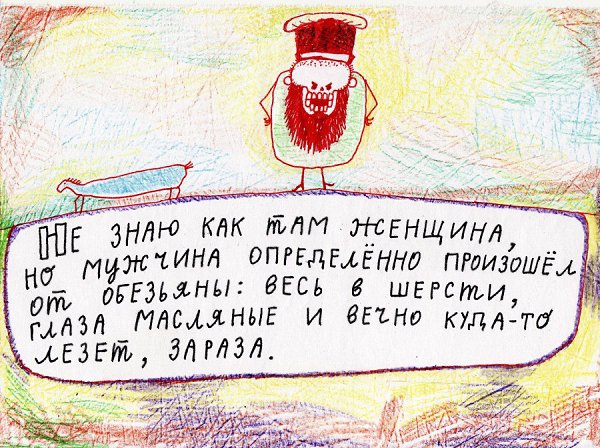 Не знаю как там женщина,
но мужчина определённо произошёл
от обезьяны: весь в шерсти,
глаза масляные и вечно куда-то
лезет, зараза.